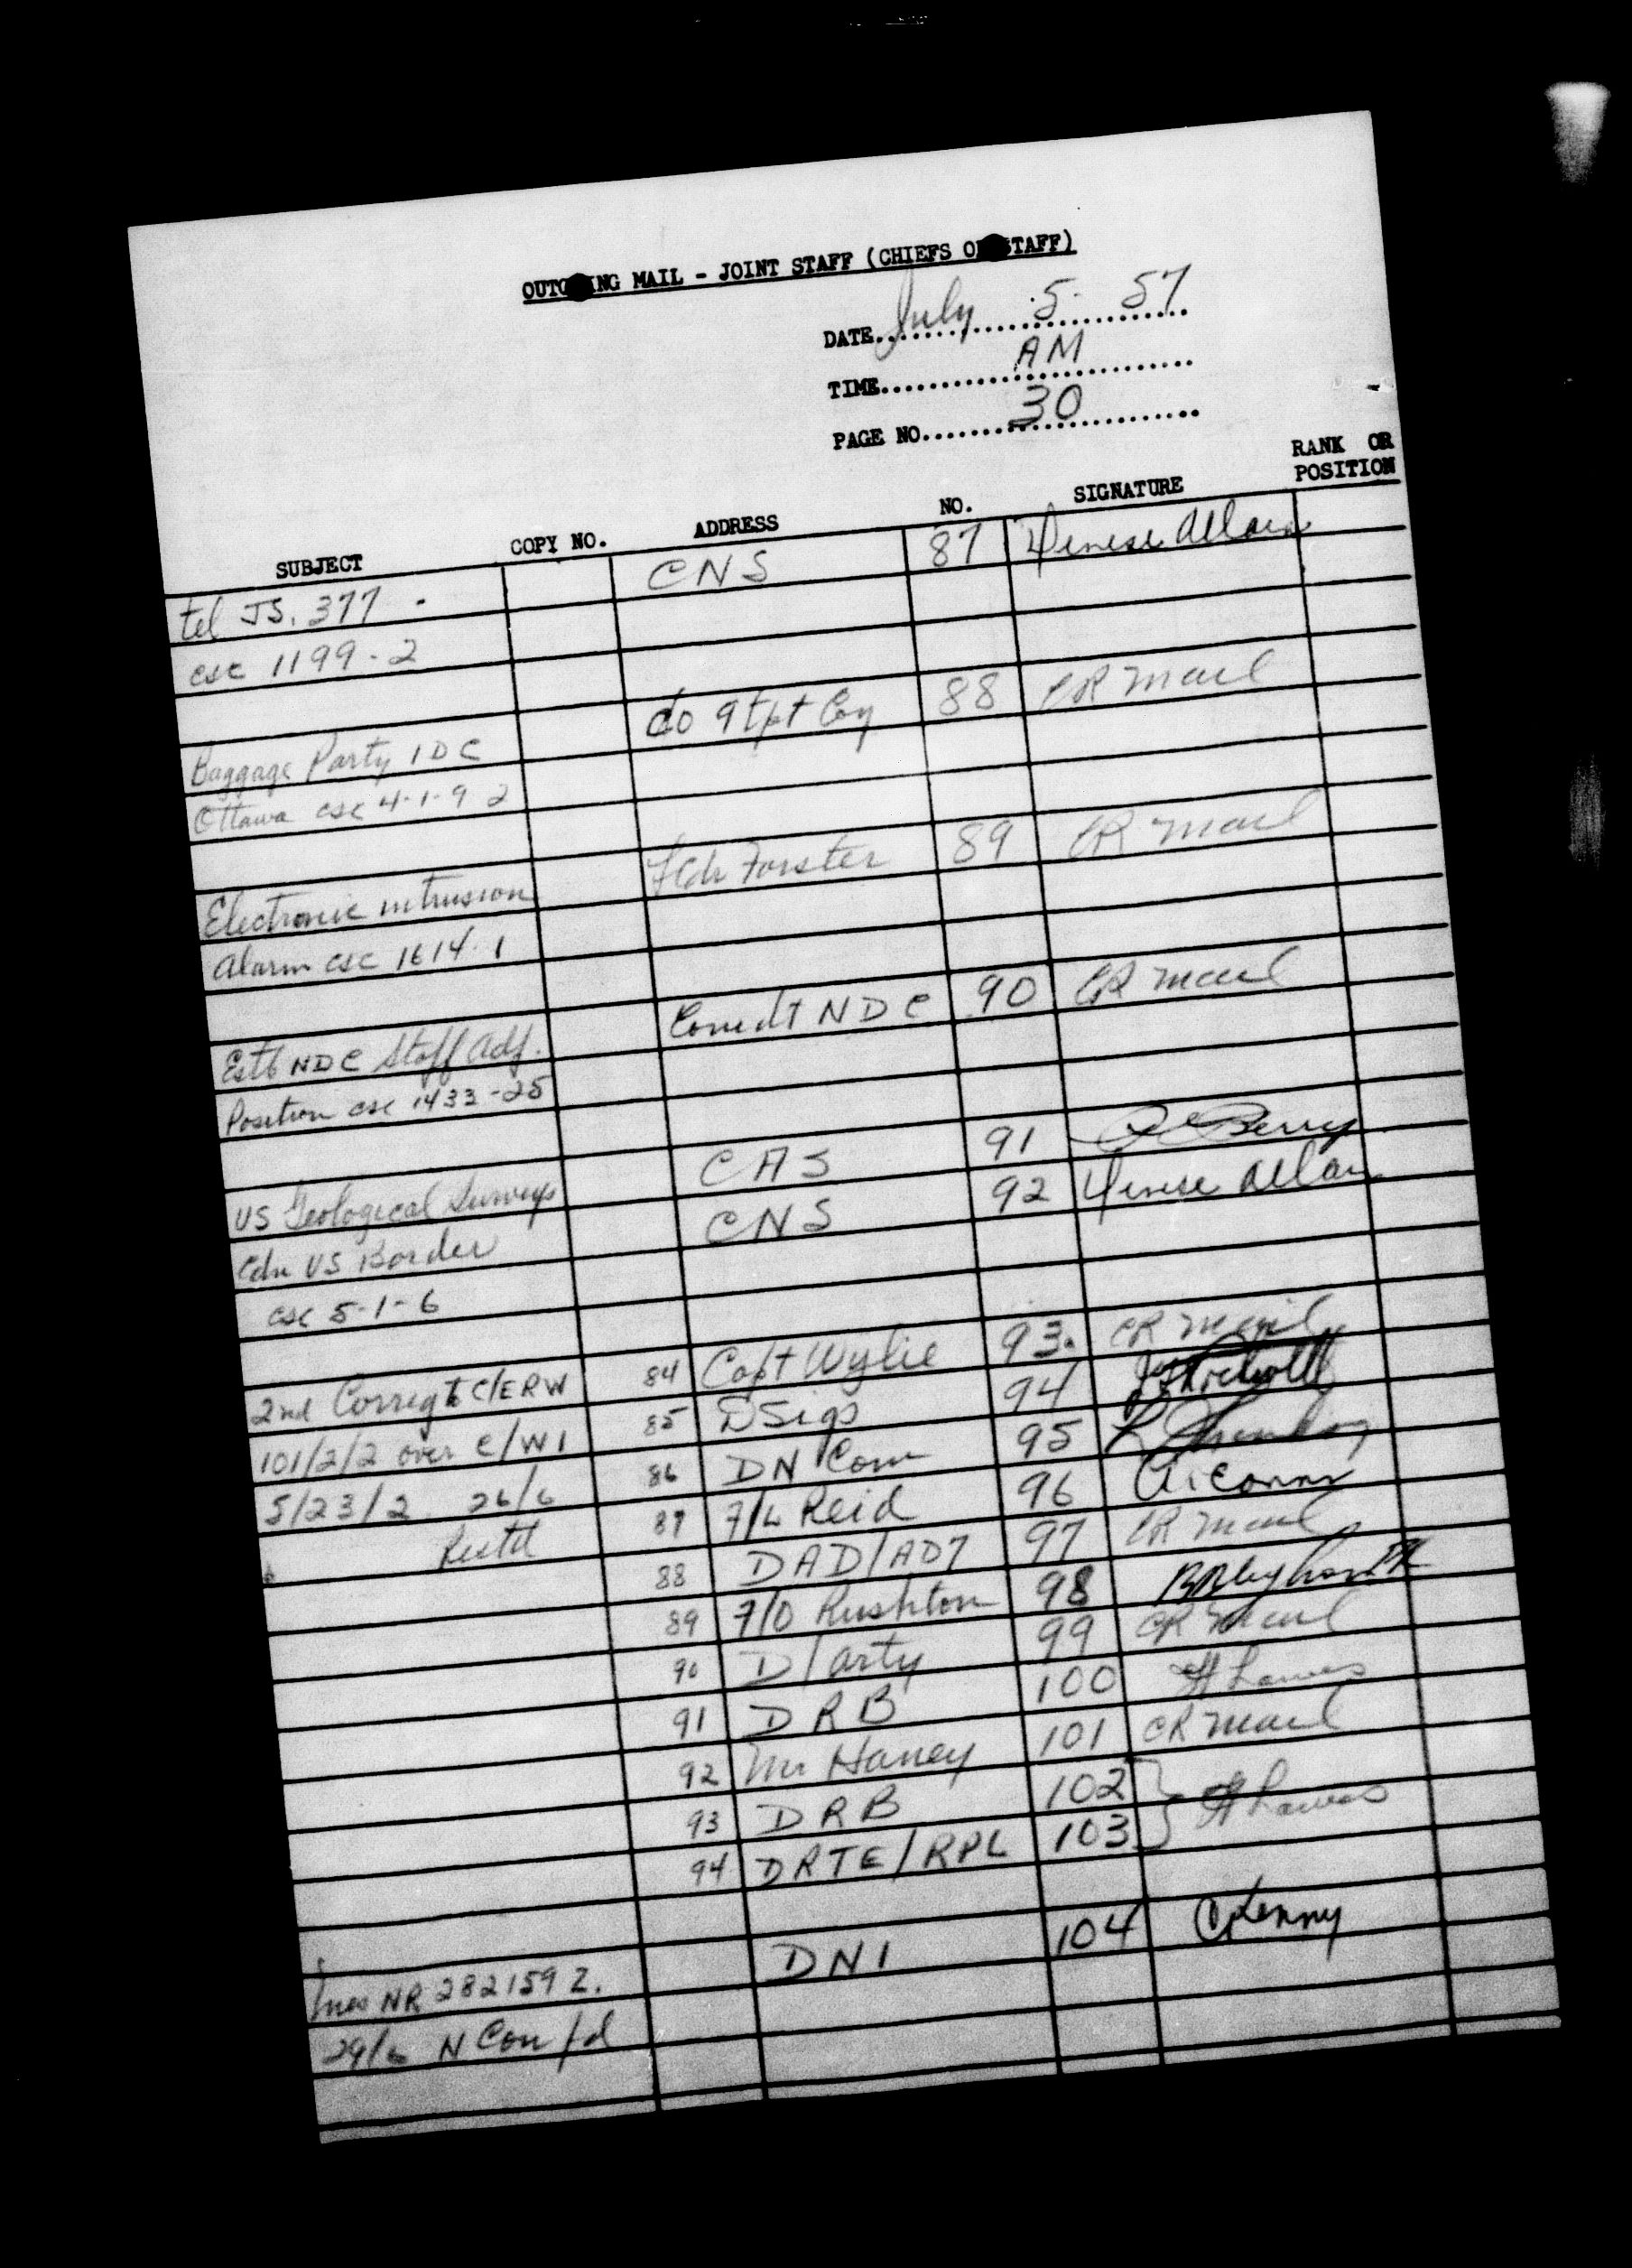 OUTGOING MAIL - JOINT STAFF (CHIEFS OF STAFF)
DATE July 5 57
TIME AM
PAGE NO 30
SUBJECT COPY NO. ADDRESS NO. SIGNATURE RANK OR POSITION
tel JS. 377 - CNS 87 Denise Allain
csc 1199-2
Baggage Party IDC CO 9 Tpt Coy 88 CR Mail
Ottawa csc 4-1-9 2
Electronic intrusion Forster 89 CR Mail
Alarm csc 1614-1
Estb NDC Staff Adj. Comdt NDC 90 CR Mail
Position csc 1433-25
US Geological Surveys CAS 91 Berry
Cdn US Border CNS 92 Denise Allain
csc 5-1-6
2nd Corrigt C/ERW 84 Capt Wylie 93. CR Mail
101/2/2 over C/WI 85 DSigs 94
5/23/2 26/6 86 DN Com 95
Restd 87 F/L Reid 96
88 DAD/AD7 97 CR Mail
89 F/O Rushton 98
90 D/Arty 99 CR Mail
91 DRB 100
92 Mr Haney 101 CR Mail
93 DRB 102
94 DRTE/RPL 103
mes NR 282159 Z. DNI 104
29/6 N Confd